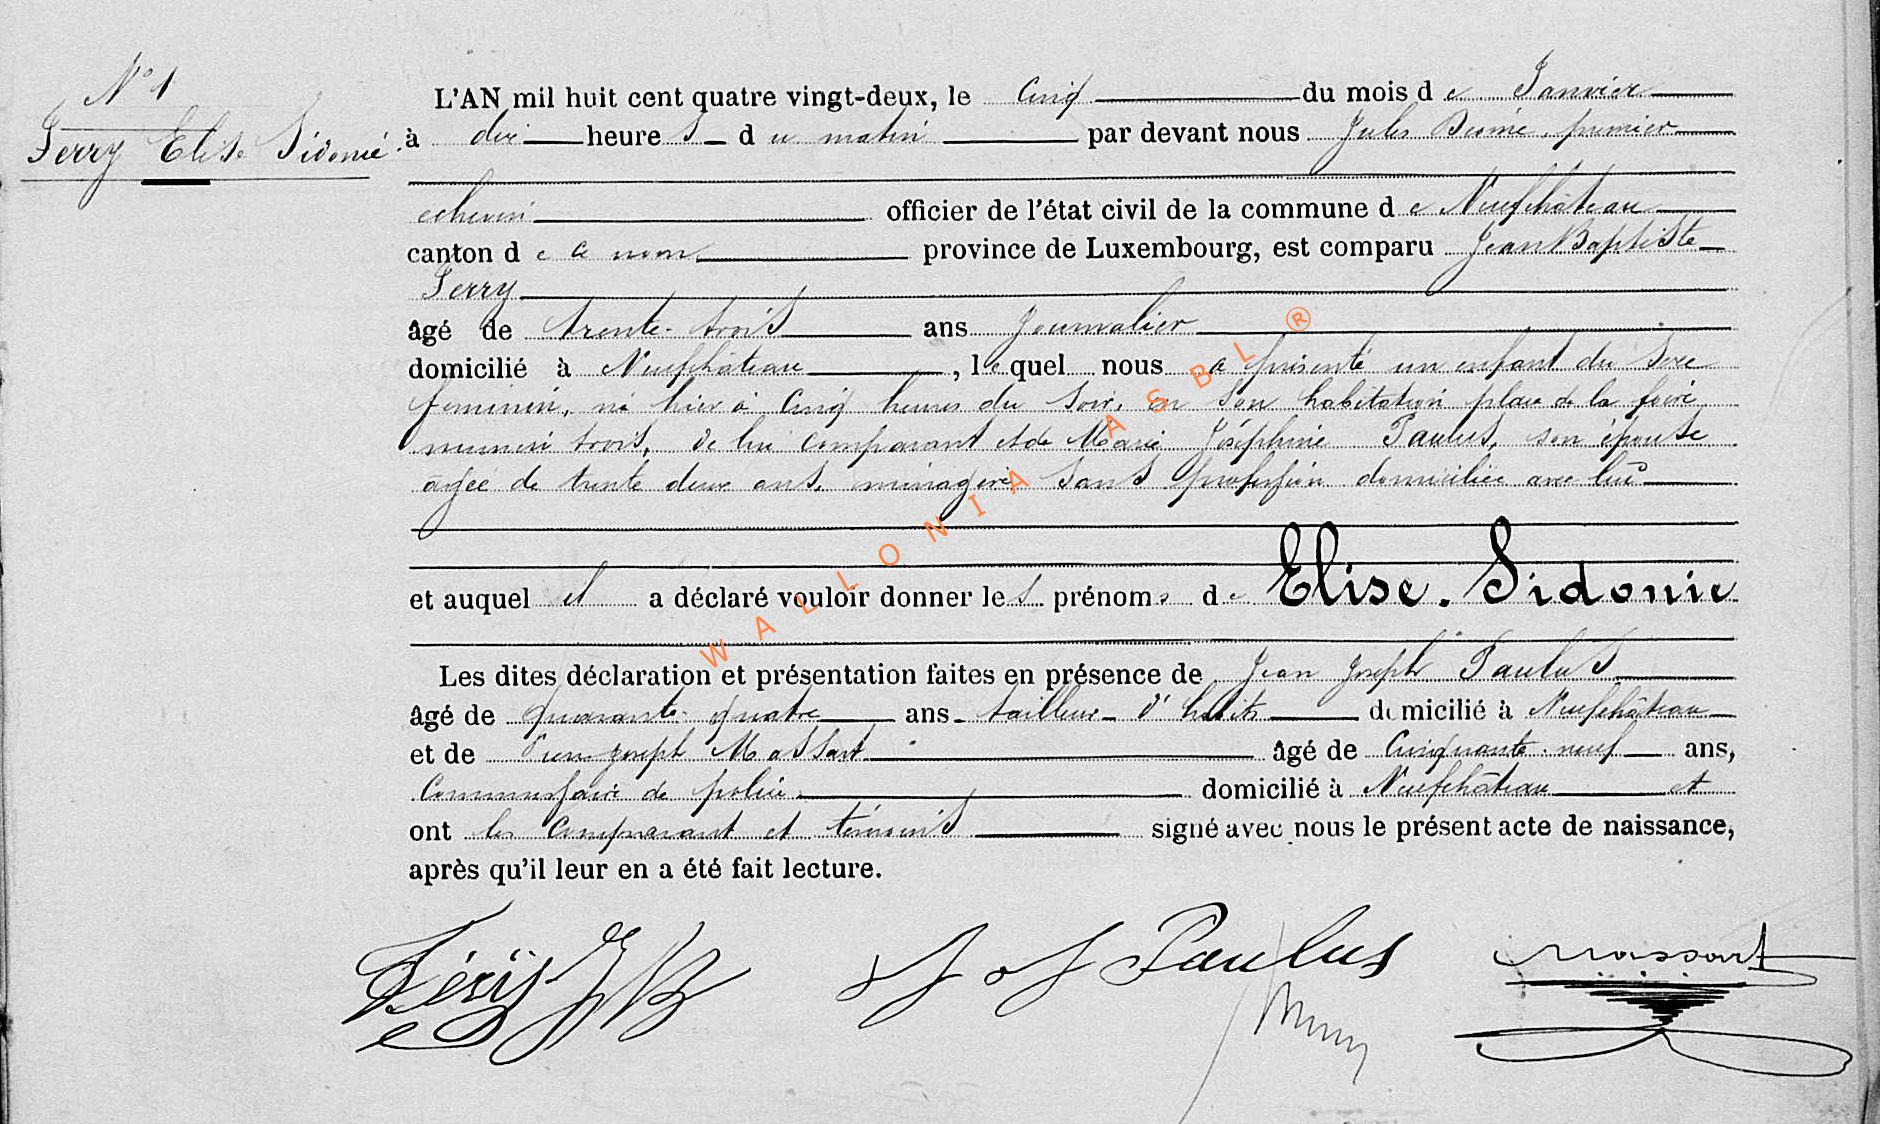 N° 1
Ferry Elise Sidonie
L'AN mil huit cent quatre vingt-deux, le cinq du mois de Janvier
à dix heures du matin par devant nous Jules premier
échevin officier de l'état civil de la commune de Neufchâteau
canton de ce nom province de Luxembourg, est comparu Jean Baptiste
Ferry
âgé de trente-trois ans Journalier
domicilié à Neufchâteau, lequel nous a présenté un enfant du sexe
féminin, né hier à cinq heures du soir, en son habitation place de la foire
numéro trois, de lui comparant et de Marie Joséphine Paulus, son épouse
âgée de trente deux ans, ménagère sans profession domiciliée avec lui
et auquel il a déclaré vouloir donner les prénoms de Elise. Sidonie
Les dites déclaration et présentation faites en présence de Jean Joseph Paulus
âgé de quarante-quatre ans tailleur d'habits domicilié à Neufchâteau
et de Joseph Massart âgé de cinquante-neuf ans,
Commissaire de police domicilié à Neufchâteau et
ont les comparant et témoins signé avec nous le présent acte de naissance,
après qu'il leur en a été fait lecture.
J J Paulus
Massart
WALLONIA ASBL ®